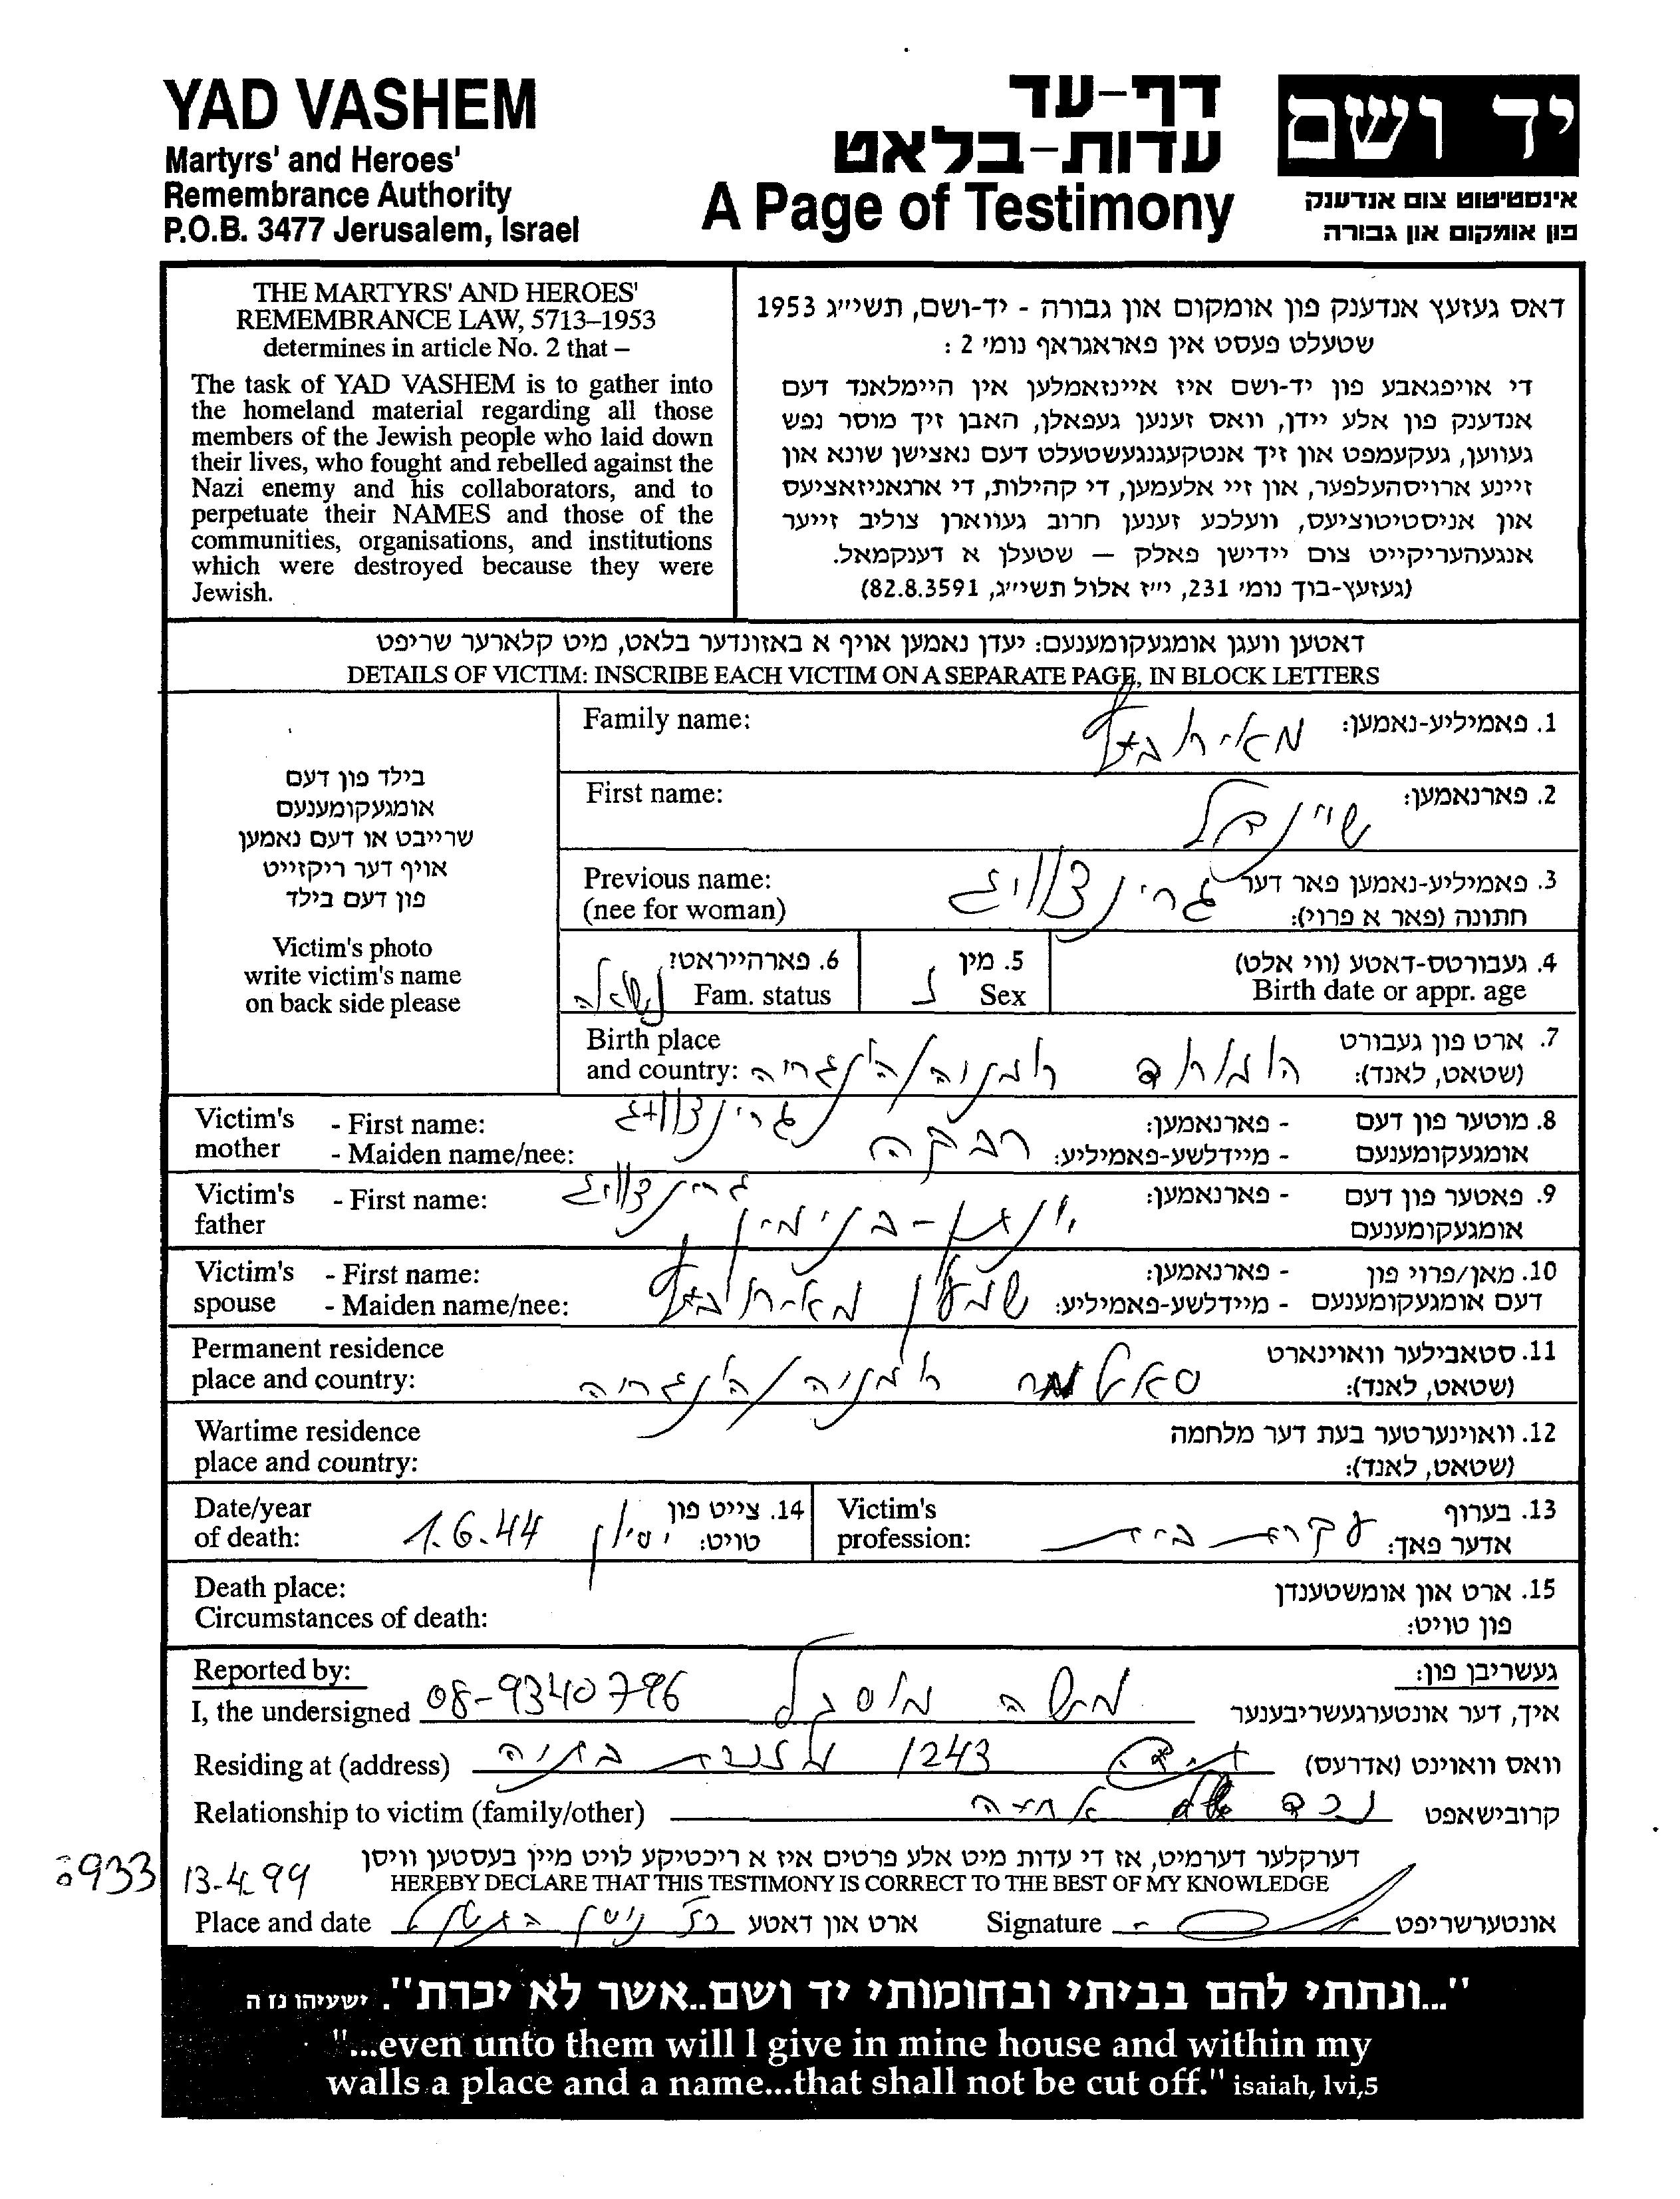 YAD VASHEM
Martyrs' and Heroes'
Remembrance Authority
P.O.B. 3477 Jerusalem, Israel
דף-עד
עדות-בלאט
A Page of Testimony
יד ושם
אינסטיטוט צום אנדענק
פון אומקום און גבורה
THE MARTYRS' AND HEROES'
REMEMBRANCE LAW, 5713–1953
determines in article No. 2 that –
The task of YAD VASHEM is to gather into
the homeland material regarding all those
members of the Jewish people who laid down
their lives, who fought and rebelled against the
Nazi enemy and his collaborators, and to
perpetuate their NAMES and those of the
communities, organisations, and institutions
which were destroyed because they were
Jewish.
דאס געזעץ אנדענק פון אומקום און גבורה - יד-ושם, תשי״ג 1953
שטעלט פעסט אין פאראגראף נומ׳ 2 :
די אויפגאבע פון יד-ושם איז איינזאמלען אין היימלאנד דעם
אנדענק פון אלע יידן, וואס זענען געפאלן, האבן זיך מוסר נפש
געווען, געקעמפט און זיך אנטקעגנגעשטעלט דעם נאצישן שונא און
זיינע ארויסהעלפער, און זיי אלעמען, די קהילות, די ארגאניזאציעס
און אניסטיטוציעס, וועלכע זענען חרוב געווארן צוליב זייער
אנגעהעריקייט צום יידישן פאלק — שטעלן א דענקמאל.
(געזעץ-בוך נומ׳ 231, י״ז אלול תשי״ג, 82.8.3591)
דאטען וועגן אומגעקומענעם: יעדן נאמען אויף א באזונדער בלאט, מיט קלארער שריפט
DETAILS OF VICTIM: INSCRIBE EACH VICTIM ON A SEPARATE PAGE, IN BLOCK LETTERS
בילד פון דעם
אומגעקומענעם
שרייבט או דעם נאמען
אויף דער ריקזייט
פון דעם בילד
Victim's photo
write victim's name
on back side please
Family name: מאירוביץ 1. פאמיליע-נאמען:
First name: שיינדל 2. פארנאמען:
Previous name: 3. פאמיליע-נאמען פאר דער
(nee for woman) גרינצווייג חתונה (פאר א פרוי):
6. פארהייראט? 5. מין 4. געבורטס-דאטע (ווי אלט)
נשואה Fam. status נ Sex Birth date or appr. age
Birth place 7. ארט פון געבורט
and country: רומניה/הונגריה (שטאט, לאנד):
Victim's - First name: גרינצווייג - פארנאמען: 8. מוטער פון דעם
mother - Maiden name/nee: רבקה - מיידלשע-פאמיליע: אומגעקומענעם
Victim's - First name: גרינצווייג - פארנאמען: 9. פאטער פון דעם
father יונתן-בנימין אומגעקומענעם
Victim's - First name: - פארנאמען: 10. מאן/פרוי פון
spouse - Maiden name/nee: שמעון מאירוביץ - מיידלשע-פאמיליע: דעם אומגעקומענעם
Permanent residence 11. סטאבילער וואוינארט
place and country: רומניה/הונגריה (שטאט, לאנד):
Wartime residence 12. וואוינערטער בעת דער מלחמה
place and country: (שטאט, לאנד):
Date/year 14. צייט פון Victim's 13. בערוף
of death: 1.6.44 י׳ סיון טויט: profession: עקרת בית אדער פאך:
Death place: 15. ארט און אומשטענדן
Circumstances of death: פון טויט:
Reported by: געשריבן פון:
I, the undersigned 08-9340796 משה איך, דער אונטערגעשריבענער
Residing at (address) 1243 וואס וואוינט (אדרעס)
Relationship to victim (family/other) נכד קרובישאפט
דערקלער דערמיט, אז די עדות מיט אלע פרטים איז א ריכטיקע לויט מיין בעסטען וויסן
933 13.4.99 HEREBY DECLARE THAT THIS TESTIMONY IS CORRECT TO THE BEST OF MY KNOWLEDGE
Place and date כ״ז ניסן ארט און דאטע Signature אונטערשריפט
"...ונתתי להם בביתי ובחומותי יד ושם..אשר לא יכרת". ישעיהו נז ה
"...even unto them will I give in mine house and within my
walls a place and a name...that shall not be cut off." isaiah, lvi,5